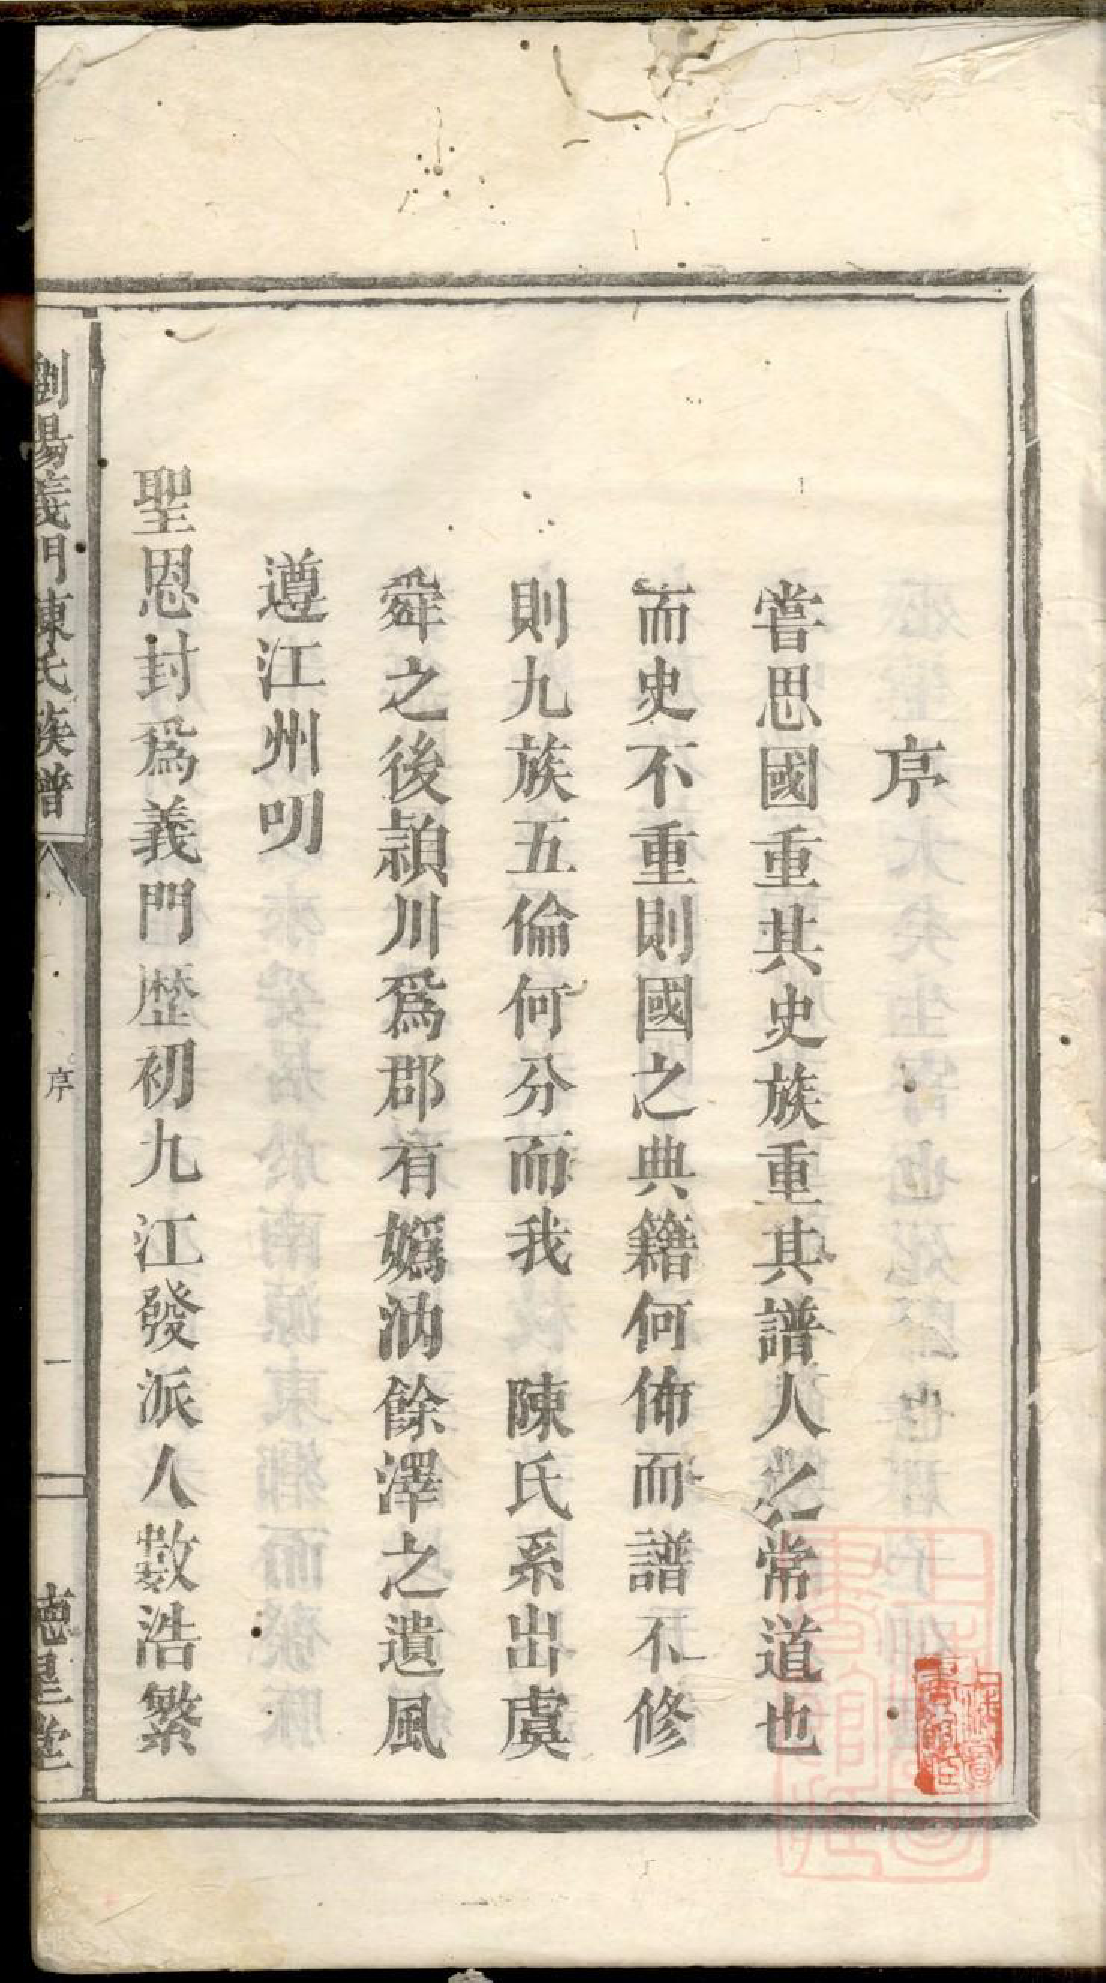 序
嘗思國重其史族重其譜人之常道也
而史不重則國之典籍何佈而譜不修
則九族五倫何分而我 陳氏系出虞
舜之後頴川爲郡有嬀汭餘澤之遺風
遵江州叨
聖恩封爲義門歷初九江發派人數浩繁
劉陽義門陳氏族譜
序
一
德星堂
上海圖書館藏